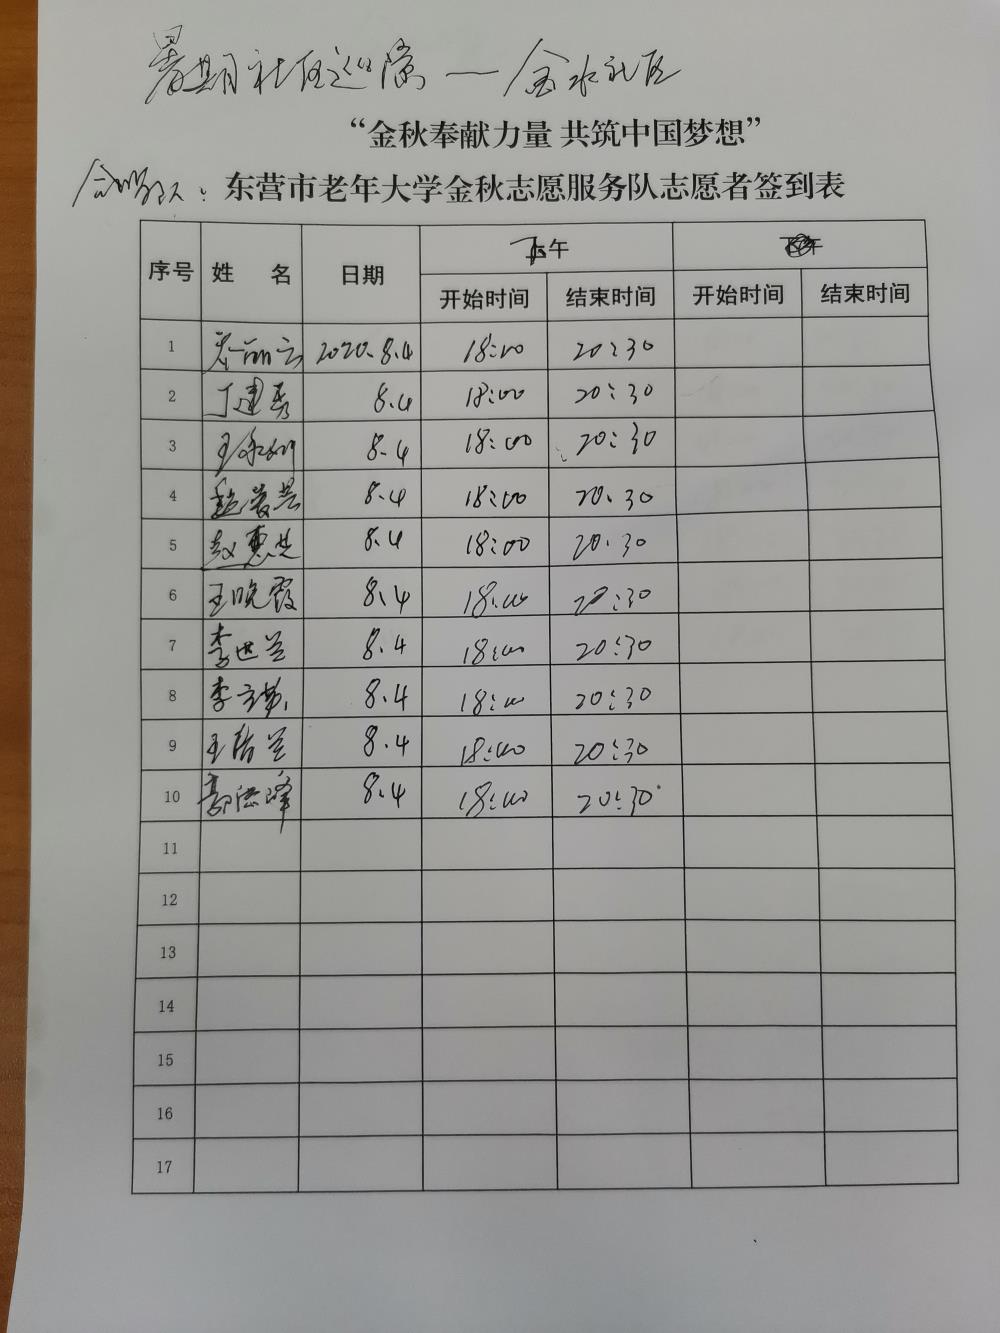 暑期社区巡演——金水社区
“金秋奉献力量 共筑中国梦想”
东营市老年大学金秋志愿服务队志愿者签到表
序号 姓 名 日期 下午 下午
开始时间 结束时间 开始时间 结束时间
1 丽云 2020.8.4 18:00 20:30
2 丁建秀 8.4 18:00 20:30
3 王 8.4 18:00 20:30
4 8.4 18:00 20.30
5 赵惠兰 8.4 18:00 20.30
6 王晚霞 8.4 18:00 20:30
7 李世兰 8.4 18:00 20:30
8 李 8.4 18:00 20:30
9 王 兰 8.4 18:00 20:30
10 郭 峰 8.4 18:00 20:30
11
12
13
14
15
16
17